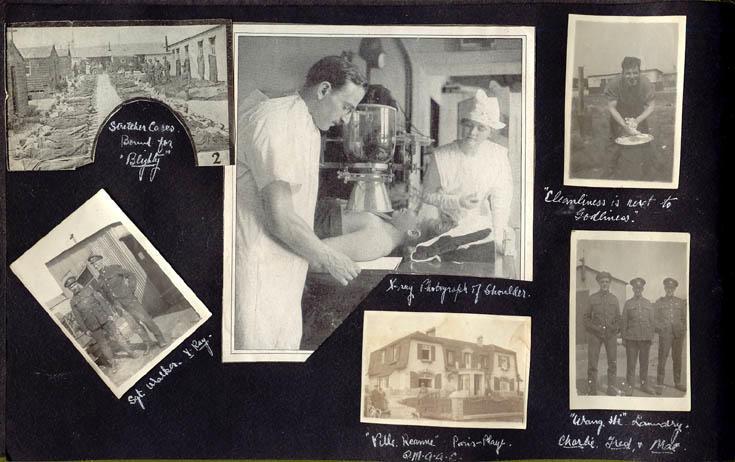 Stretcher Cases
Bound for
"Blighty"
2
X-ray Photograph of Shoulder.
"Cleanliness is next to
Godliness".
Sgt Walker. X-Ray.
Paris-Plage.
Q.M.A.A.C.
Laundry.
Charlie, Fred, & Mac